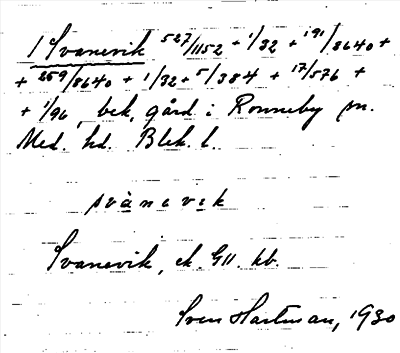 1 Svanevik 527/1152 + 1/32 + 191/8640 +
+ 259/8640 + 1/32 + 5/384 + 17/576 +
+ 1/96, bek. gård i Ronneby sn.
Med. hd. Blek. l.
svànevik
Svanevik, ek Gll. kb.
Sven Hartman, 1930